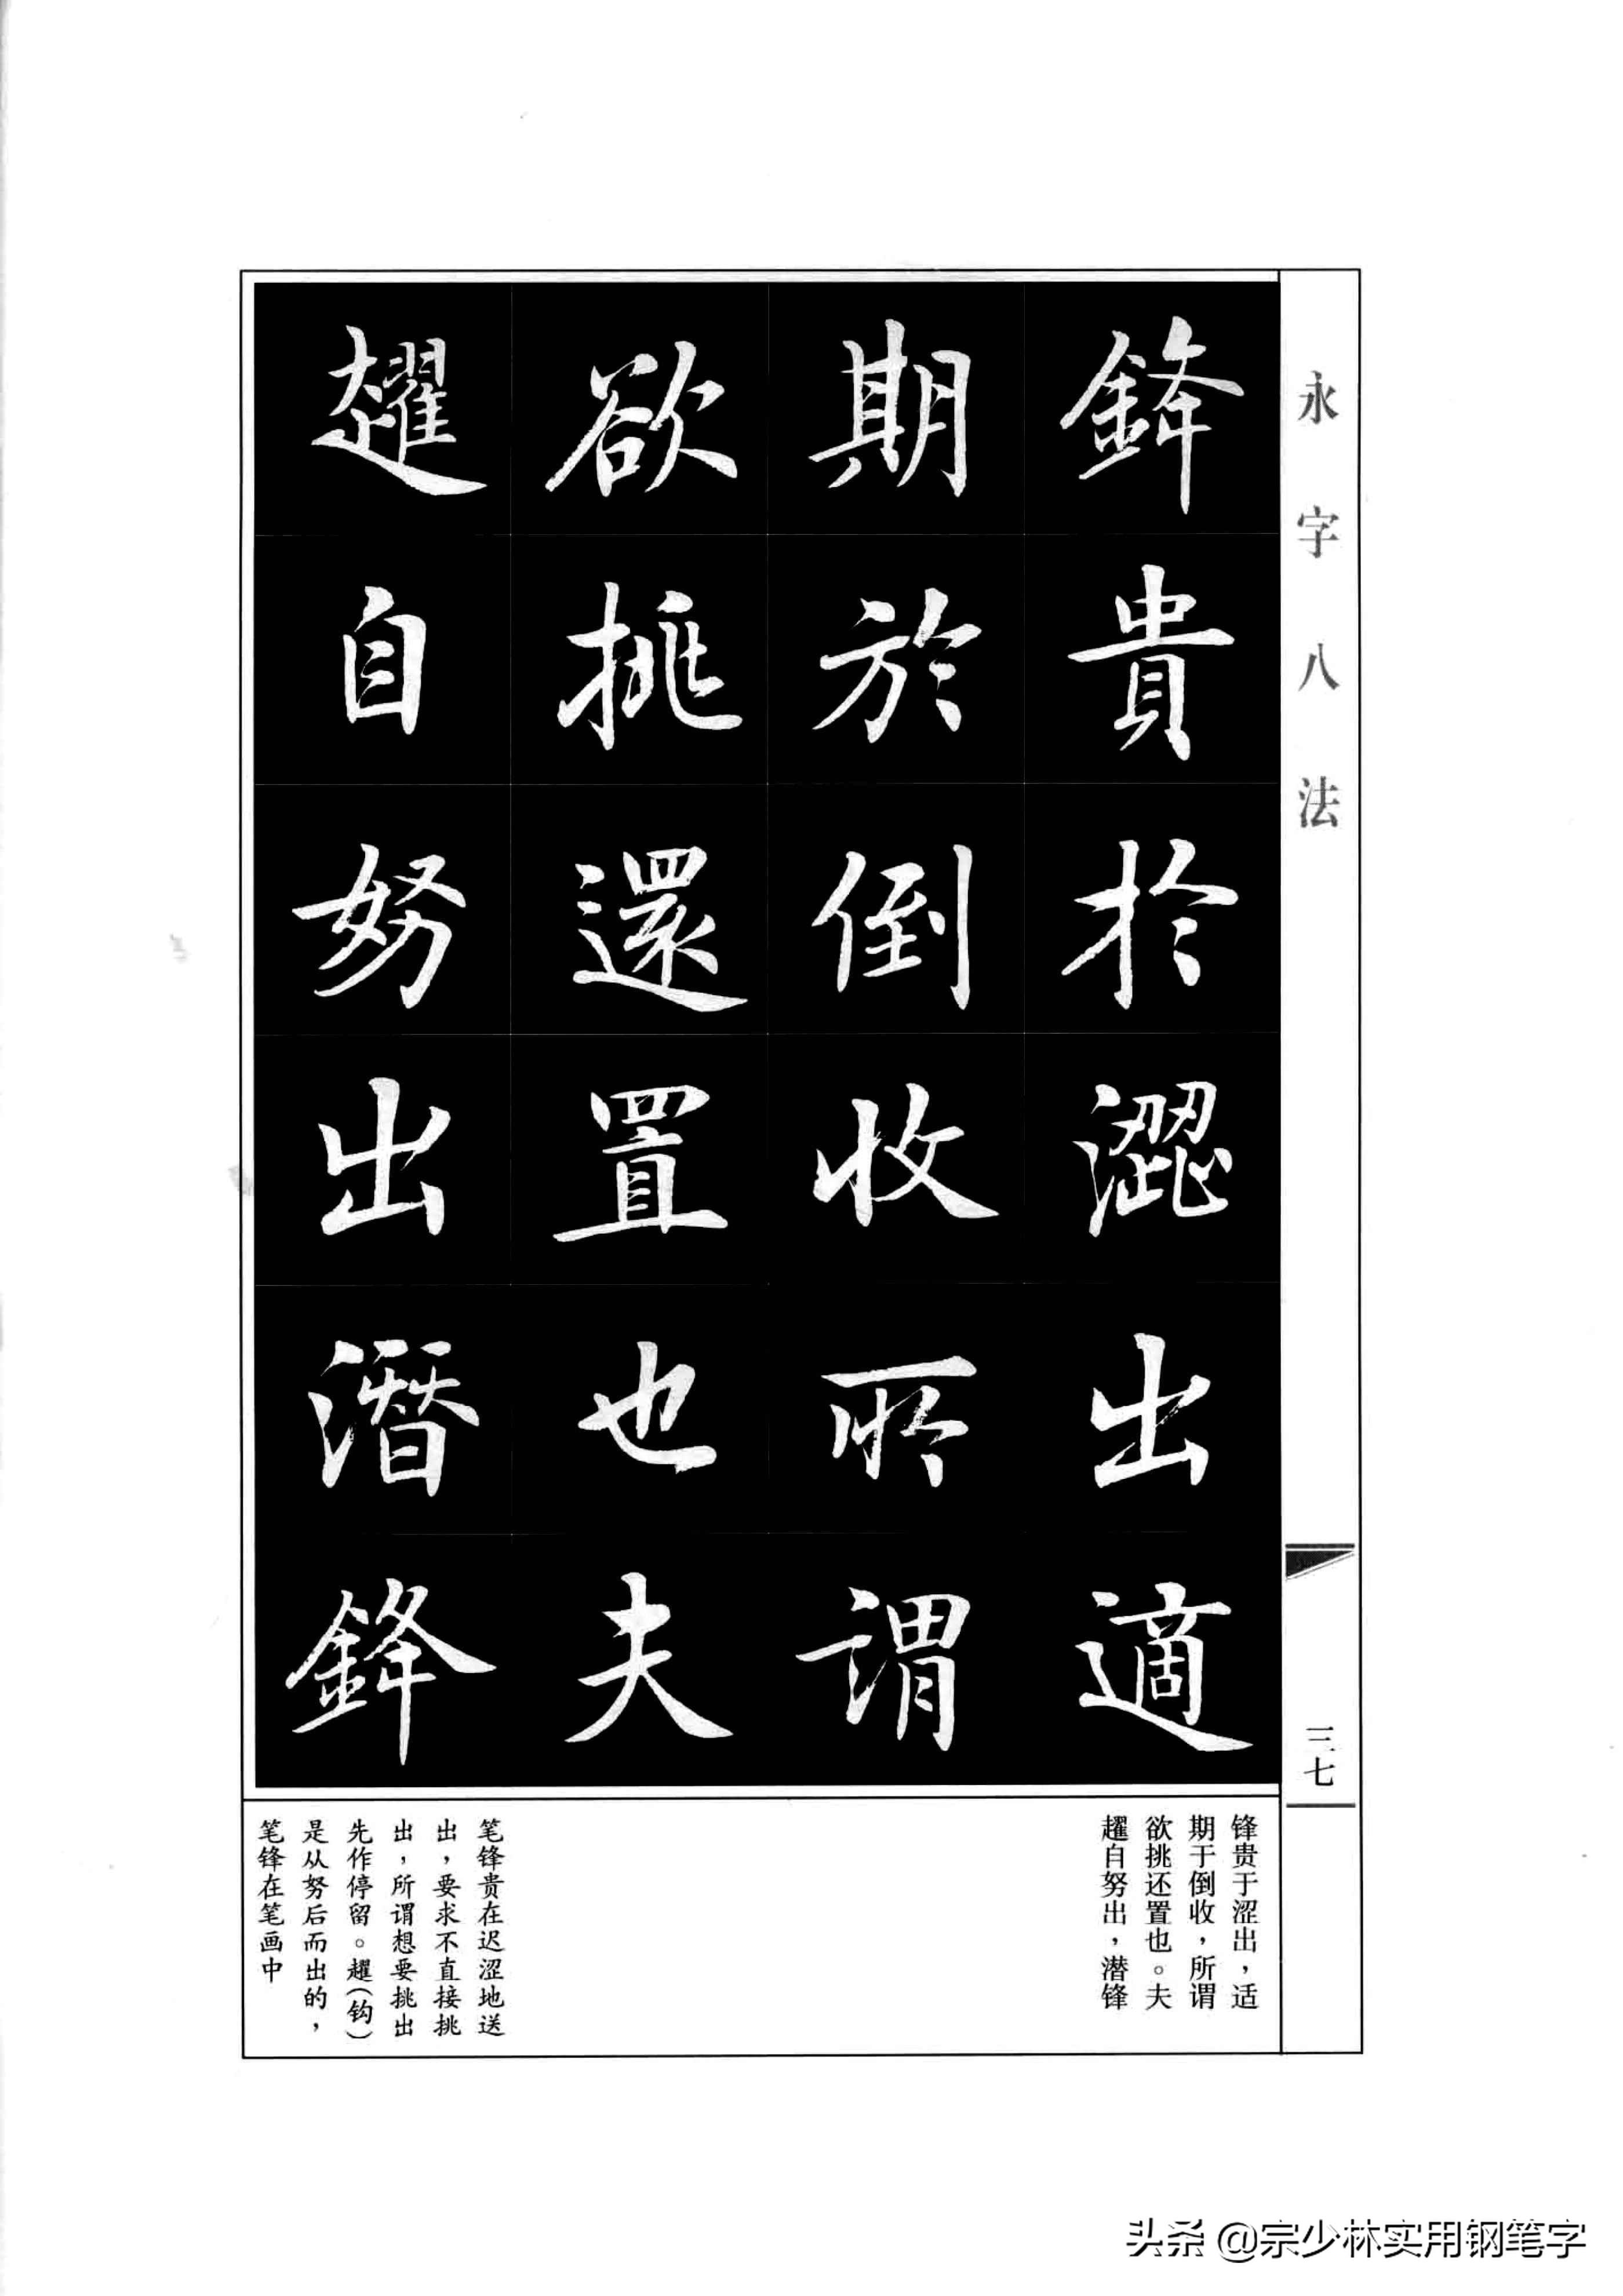 永字八法
三七
鋒貴於澀出適
期於倒收所謂
欲挑還置也夫
趯自努出潛鋒
锋贵于涩出，适
期于倒收，所谓
欲挑还置也。夫
趯自努出，潜锋
笔锋贵在迟涩地送
出，要求不直接挑
出，所谓想要挑出
先作停留。趯（钩）
是从努后而出的，
笔锋在笔画中
头条 @宗少林实用钢笔字